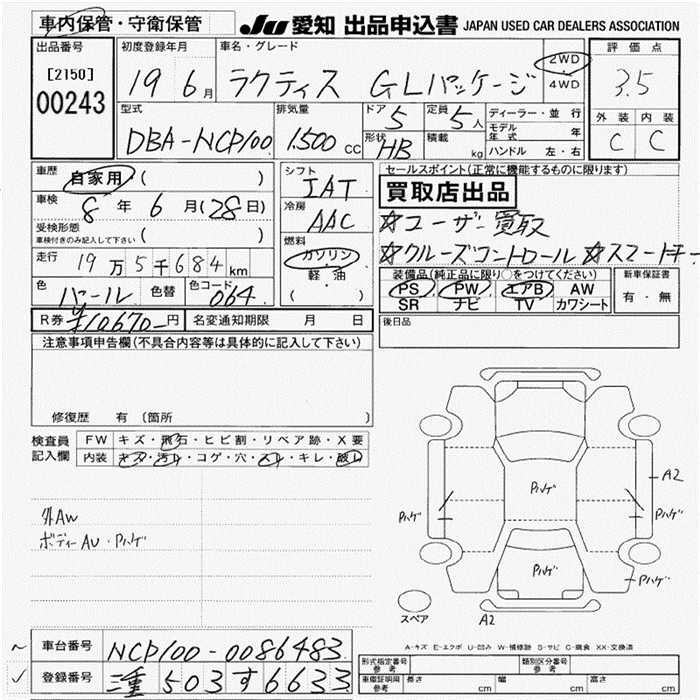 車内保管・守衛保管
JU 愛知 出品申込書 JAPAN USED CAR DEALERS ASSOCIATION
出品番号
[2150]
00243
初度登録年月
19 6月
車名・グレード
ラクティス GLパッケージ
2WD
4WD
評価点
3.5
外装 内装
C C
型式
DBA-NCP100
排気量
1500cc
ドア 5
形状 HB
定員 5人
積載 kg
ディーラー・並行
モデル年式 年
ハンドル 左・右
車歴 自家用 ( )
車検 8年 6月(28日)
受検形態
車検付きのみ記入して下さい ( )
走行 19万5千684km
色 パール 色替 色コード 064
シフト
IAT
冷房
AAC
燃料
ガソリン
軽・油
( ・ )
セールスポイント(正常に機能するものに限ります)
買取店出品
☆ユーザー買取
☆クルーズコントロール ☆スマートキー
装備品(純正品に限り○をつけてください)
PS PW エアB AW
SR ナビ TV カワシート
新車保証書
有・無
R券 ¥10670-円 名変通知期限 月 日
後日品
注意事項申告欄(不具合内容等は具体的に記入して下さい)
修復歴 有 (箇所
検査員記入欄
FW キズ・飛石・ヒビ割・リペア跡・X要
内装 キズ・汚れ・コゲ・穴・スレ・キレ・破レ
外AW
ボディーAU・Pハゲ
Pハゲ
A2
Pハゲ
Pハゲ
Pハゲ
Pハゲ
スペア
A2
A-キズ E-エクボ U-凹み W-補修跡 S-サビ C-腐食 XX-交換済
~ 車台番号 NCP100-0086483
✓ 登録番号 三重 503 す 6633
型式指定番号 参考
類別区分番号 参考
車庫証明用 参考 長さ cm 幅 cm 高さ cm